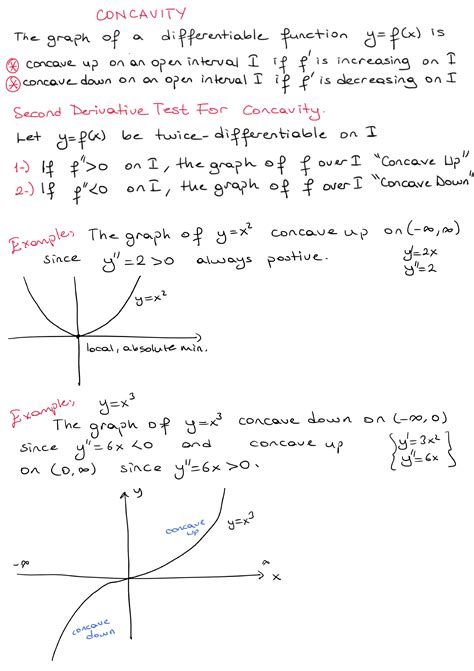 CONCAVITY
The graph of a differentiable function y=f(x) is
⊛ concave up on an open interval I if f' is increasing on I
⊛ concave down on an open interval I if f' is decreasing on I
Second Derivative Test For Concavity.
Let y=f(x) be twice-differentiable on I
1-) If f''>0 on I, the graph of f over I "Concave Up"
2-) If f''<0 on I, the graph of f over I "Concave Down"
Example, The graph of y=x² concave up on (-∞,∞)
since y''=2>0 always postive.
y'=2x
y''=2
y=x²
local, absolute min.
Example, y=x³
The graph of y=x³ concave down on (-∞,0)
since y''=6x<0 and concave up
on (0,∞) since y''=6x>0.
{y'=3x²
y''=6x}
y
concave up
y=x³
-∞
∞
x
concave down